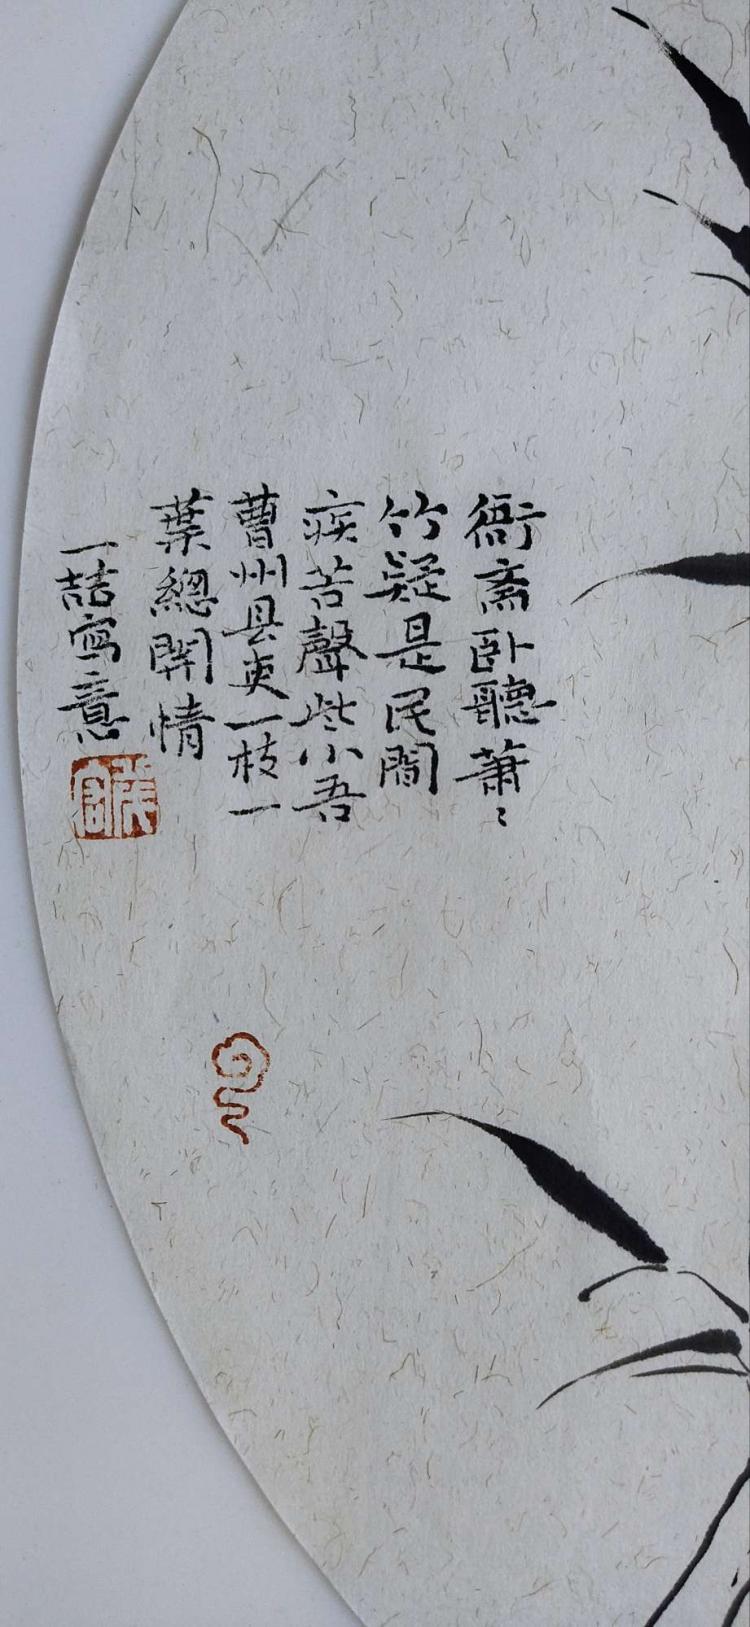 衙斋卧聽萧〻
竹疑是民間
疾苦聲些小吾
曹州县吏一枝一
葉總關情
一喆寫意